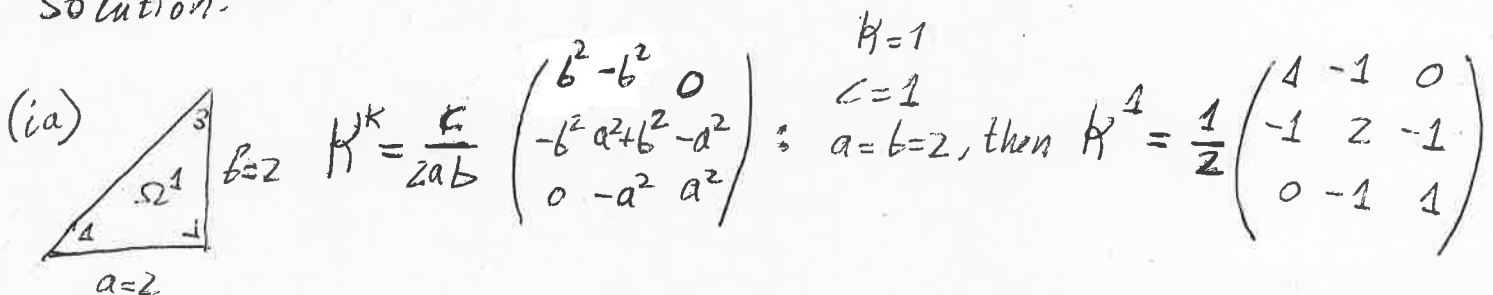 Solution.
(ia) K^K = c/(2ab) (b² -b² 0; -b² a²+b² -a²; 0 -a² a²) : K=1, c=1, a=b=2, then K^1 = 1/2 (1 -1 0; -1 2 -1; 0 -1 1)
3
Ω^1
b=2
1
a=2